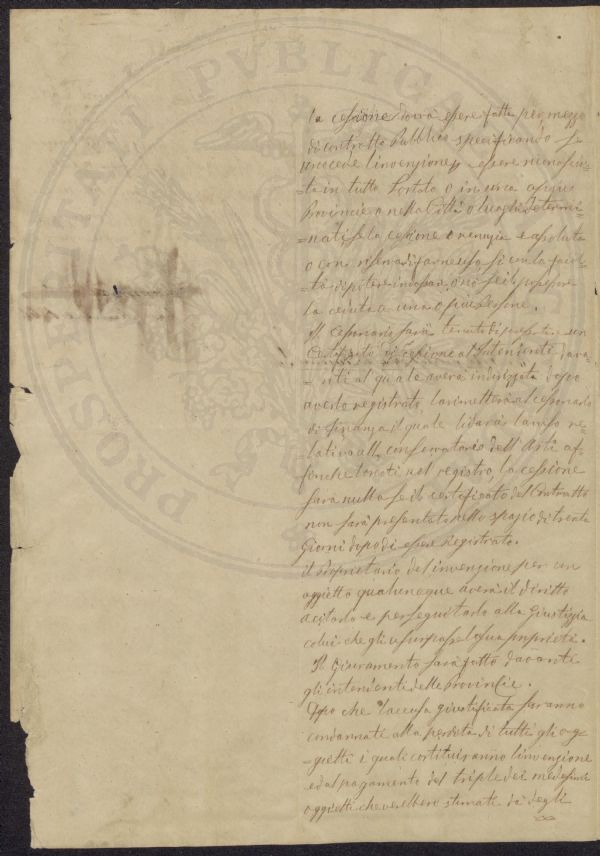 la cessione dovrà essere fatta per mezzo
di contratto Pubblico specificando se
si concede l'invenzione p essere riconosciu-
-ta in tutto lo stato o in una o più
Provincie o nella Città o luoghi determi-
-nati se la cessione o renuzia e assoluta
o con riserva di farne uso si con la facol-
-tà di potere o nò se il
la ceduta a una o più Persone.
Il Cessionario sarà tenuto di presentare un
Certificato di Cessione al Intendente dava-
-nti al quale averà indirizzata dopo
averlo registrato la rimetterà al
di finanza il quale li darà lampo re-
lativo alla conservatorio dell'Arti af-
finche lo noti nel registro, la cessione
sarà nulla se il certificato del Contratto
non sarà presentato nello spazio di trenta
Giorni dopo di essere Registrato.
il Proprietario del invenzione per un
oggietto qualuneque averà il diritto
a citarlo e perseguitarlo alla Giustizzia
colui che gli usurpasse la sua proprietà.
Il Giuramento sarà fatto davante
gli intendenti delle Provincie.
Dopo che l'accusa giustificata saranno
condannate alla perdita di tutti gli og-
-gietti i quali costituiranno l'invenzione
ed al pagamento del triple dei medesimi
oggietti che verebbero stimati da degli
PROSPERITATI PVBLICAE